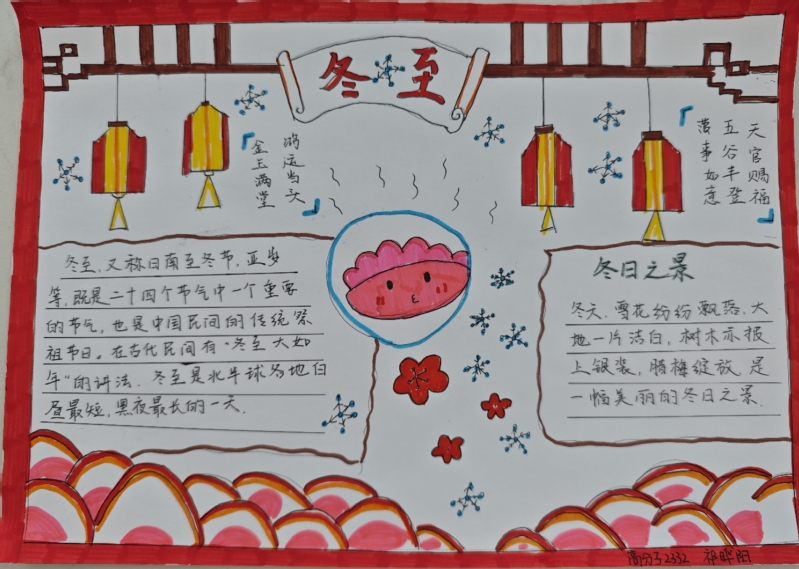 冬至
鸿运当头
金玉满堂
天官赐福
五谷丰登
万事如意
冬至，又称日南至冬节，亚岁
等，既是二十四个节气中一个重要
的节气，也是中国民间的传统祭
祖节日。在古代民间有“冬至大如
年”的讲法。冬至是北半球各地白
昼最短，黑夜最长的一天。
冬日之景
冬天，雪花纷纷飘落，大
地一片洁白，树木亦报
上银装，腊梅绽放，是
一幅美丽的冬日之景。
高分子2332